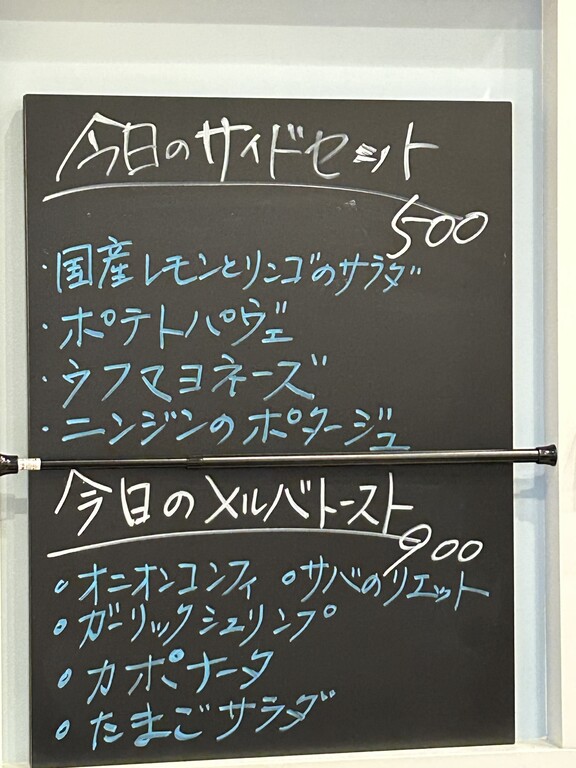 今日のサイドセット
500
・国産レモンとリンゴのサラダ
・ポテトパヴェ
・ウフマヨネーズ
・ニンジンのポタージュ
今日のメルバトースト
900
○オニオンコンフィ ○サバのリエット
○ガーリックシュリンプ
○カポナータ
○たまごサラダ